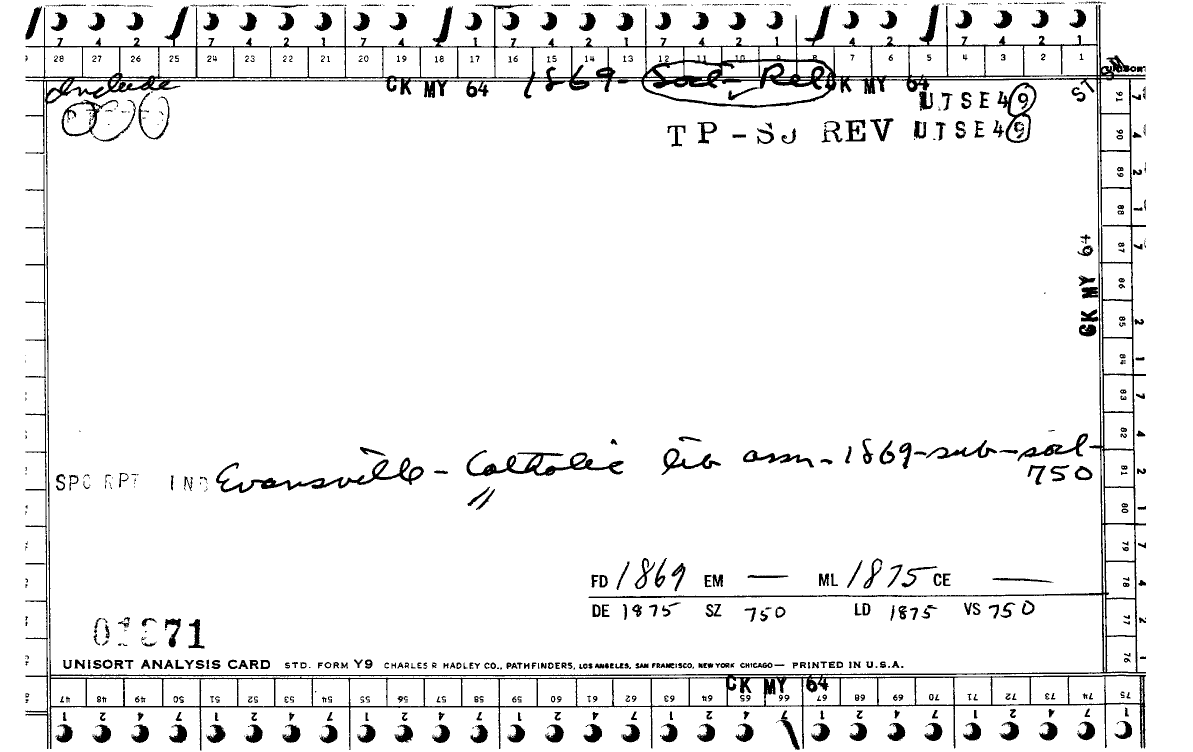 7 4 2 1 7 4 2 1 7 4 2 1 7 4 2 1 7 4 2 1 7 4 2 1 7 4 2 1
28 27 26 25 24 23 22 21 20 19 18 17 16 15 14 13 12 11 10 9 8 7 6 5 4 3 2 1
Include CK MY 64 1869- Soal- Rel CK MY 64
UTSE49
TP-SJ REV UTSE49
CK MY 64
SPC RPT IND Evansville - Catholic lib assn-1869-sub-soal-
750
FD 1869 EM — ML 1875 CE —
DE 1875 SZ 750 LD 1875 VS 750
71
UNISORT ANALYSIS CARD STD. FORM Y9 CHARLES R HADLEY CO., PATHFINDERS, LOS ANGELES, SAN FRANCISCO, NEW YORK CHICAGO — PRINTED IN U.S.A.
CK MY 64
47 48 49 50 51 52 53 54 55 56 57 58 59 60 61 62 63 64 65 66 67 68 69 70 71 72 73 74 75
91 90 89 88 87 86 85 84 83 82 81 80 79 78 77 76